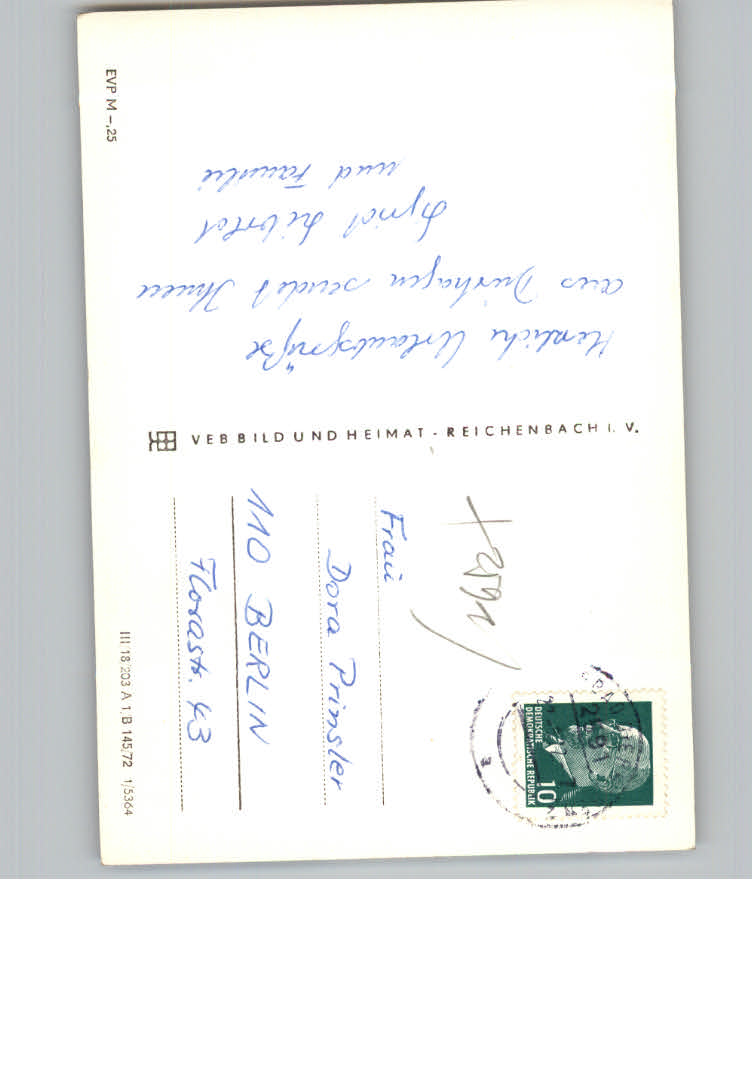 EVP M –,25
Herzliche Urlaubsgrüße
aus Dierhagen sendet Ihnen
und Familie
VEB BILD UND HEIMAT - REICHENBACH I. V.
Frau
Dora Prinsler
110 BERLIN
Florastr. 43
III 18 203 A 1 B 145/72 1/5364
DEUTSCHE
DEMOKRATISCHE REPUBLIK
10